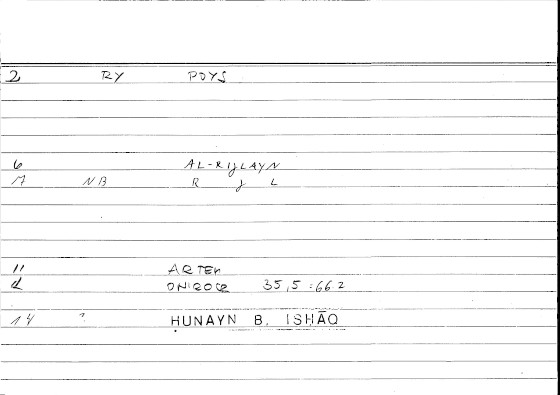 2 RY POYS
6 AL-RIJLAYN
M NB R J L
11 ARTEM
d ONIROCR 35,5 : 66 2
14 ? ḤUNAYN B. ISḤĀQ